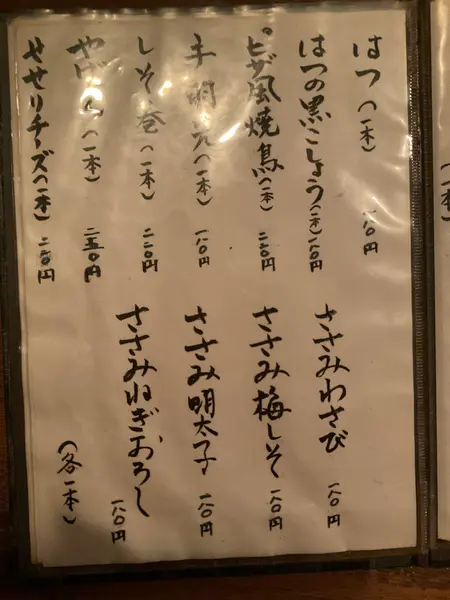 はつ(一本) 一八〇円
はつの黒こしょう(一本)一八〇円
ピザ風焼鳥(一本) 二二〇円
手羽元(一本) 一八〇円
しそ巻(一本) 二二〇円
やげん(一本) 二五〇円
せせりチーズ(一本) 二二〇円
ささみわさび 一八〇円
ささみ梅しそ 一八〇円
ささみ明太子 一八〇円
ささみねぎおろし 一八〇円
(各一本)
(一本)